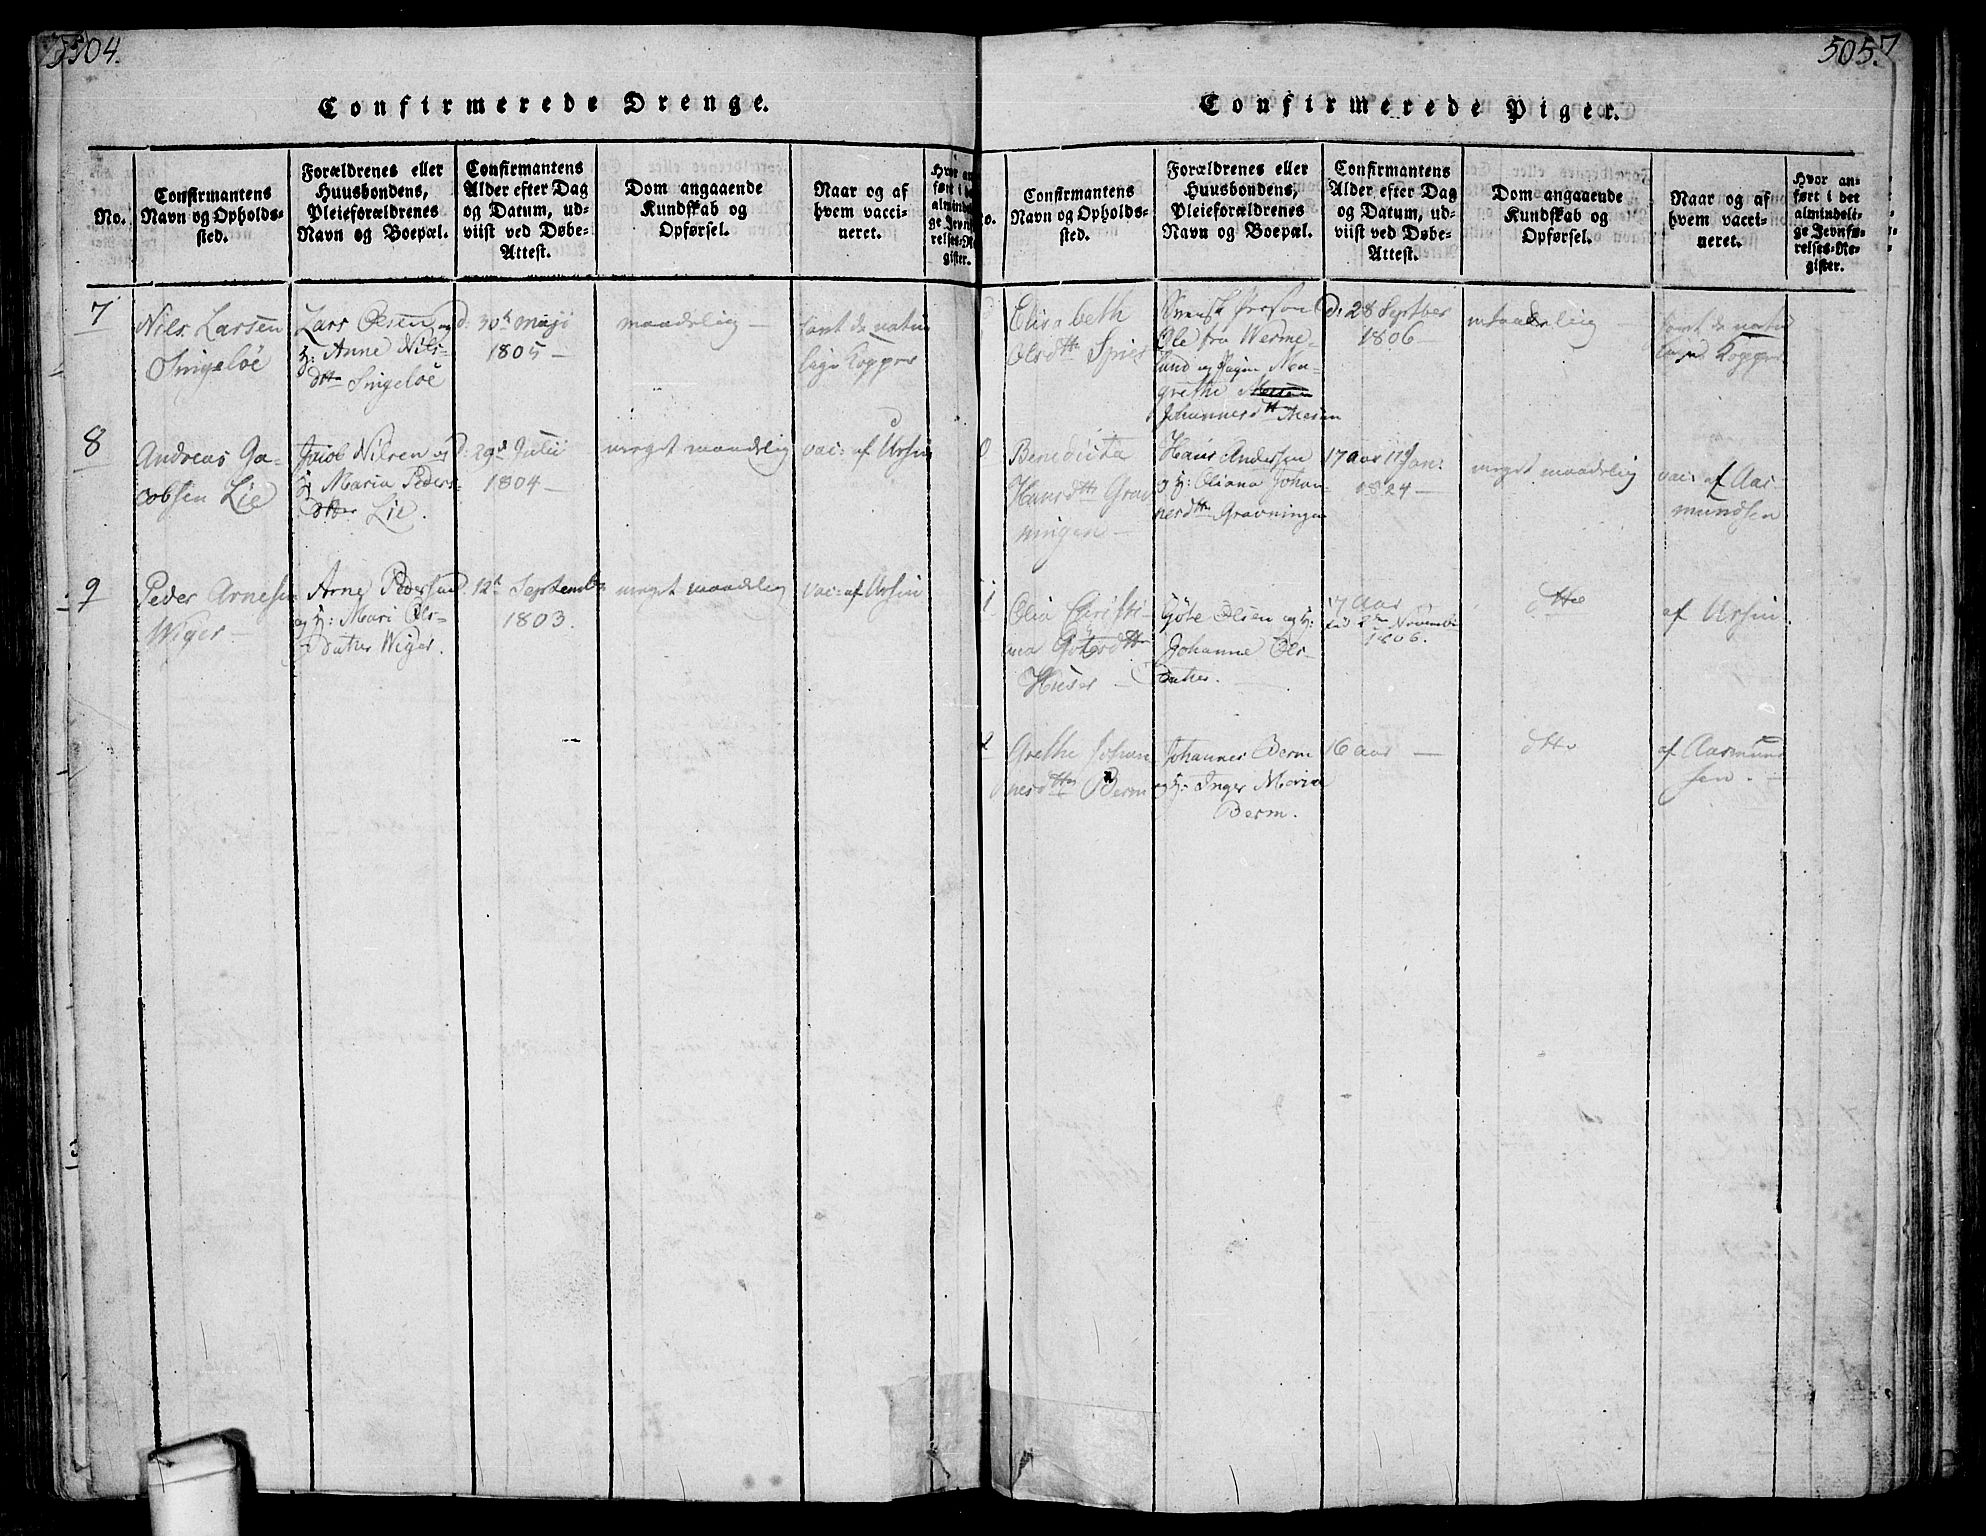 504.
Confirmerede Drenge.
No.
Confirmantens
Navn og Opholds-
sted.
Forældrenes eller
Huusbondens,
Pleieforældrenes
Navn og Boepæl.
Confirmantens
Alder efter Dag
og Datum, ud-
viist ved Døbe-
Attest.
Dom angaaende
Kundskab og
Opførsel.
Naar og af
hvem vacci-
neret.
7
Nils Larsen
Singeloe
Lars Olsen og
H: Anne Nils-
dtr Singeloe
d: 30t Maji
1805 —
maadelig —
havt de natur
lige Kopper
8
Andreas Ja-
cobsen Lie
Jacob Nilsen og
H Maria Peders-
dtter Lie.
d: 29d Julii
1804 —
meget maadelig
vac: af Ursin
9
Peder Arnesen
Wiger —
Arne Pedersen
og H: Mari Ols-
Datter Wiger.
d. 12t Septemb
1803.
meget maadelig
vac: af Ursin
505.
Confirmerede Piger.
No.
Confirmantens
Navn og Opholds-
sted.
Forældrenes eller
Huusbondens,
Pleieforældrenes
Navn og Boepæl.
Confirmantens
Alder efter Dag
og Datum, ud-
viist ved Døbe-
Attest.
Dom angaaende
Kundskab og
Opførsel.
Naar og af
hvem vacci-
neret.
Hvor an-
ført i det
almindeli-
ge Jevnfø-
relses-Re-
gister.
Elisabeth
Olsdtt
Svensk Person
Ole fra Werme-
land og Pigen Ma-
grethe
Johannesdtt Mesen
d: 28 Septber
1806 —
maadelig
havt de natur
lige Kopper
Benedicta
Hansdtt Grav
ningen —
Hans Andersen
og H: Oliana Johan-
nesdtt Gravningen
17 aar 11d Jan:
1824 —
meget maadelig
vac: af Aas-
mundsen
Olia Christi-
na Götesdtt
Huser —
Göte Olsen og H:
Johanne Ols-
Datter. —
17 Aar
2den Novemb
1806.
dtto
af Ursin.
Grethe Johan
nesdtt Berm
Johannes Berm
og H: Inger Maria
Berm.
16 aar —
dtto
af Aasmund
sen. —